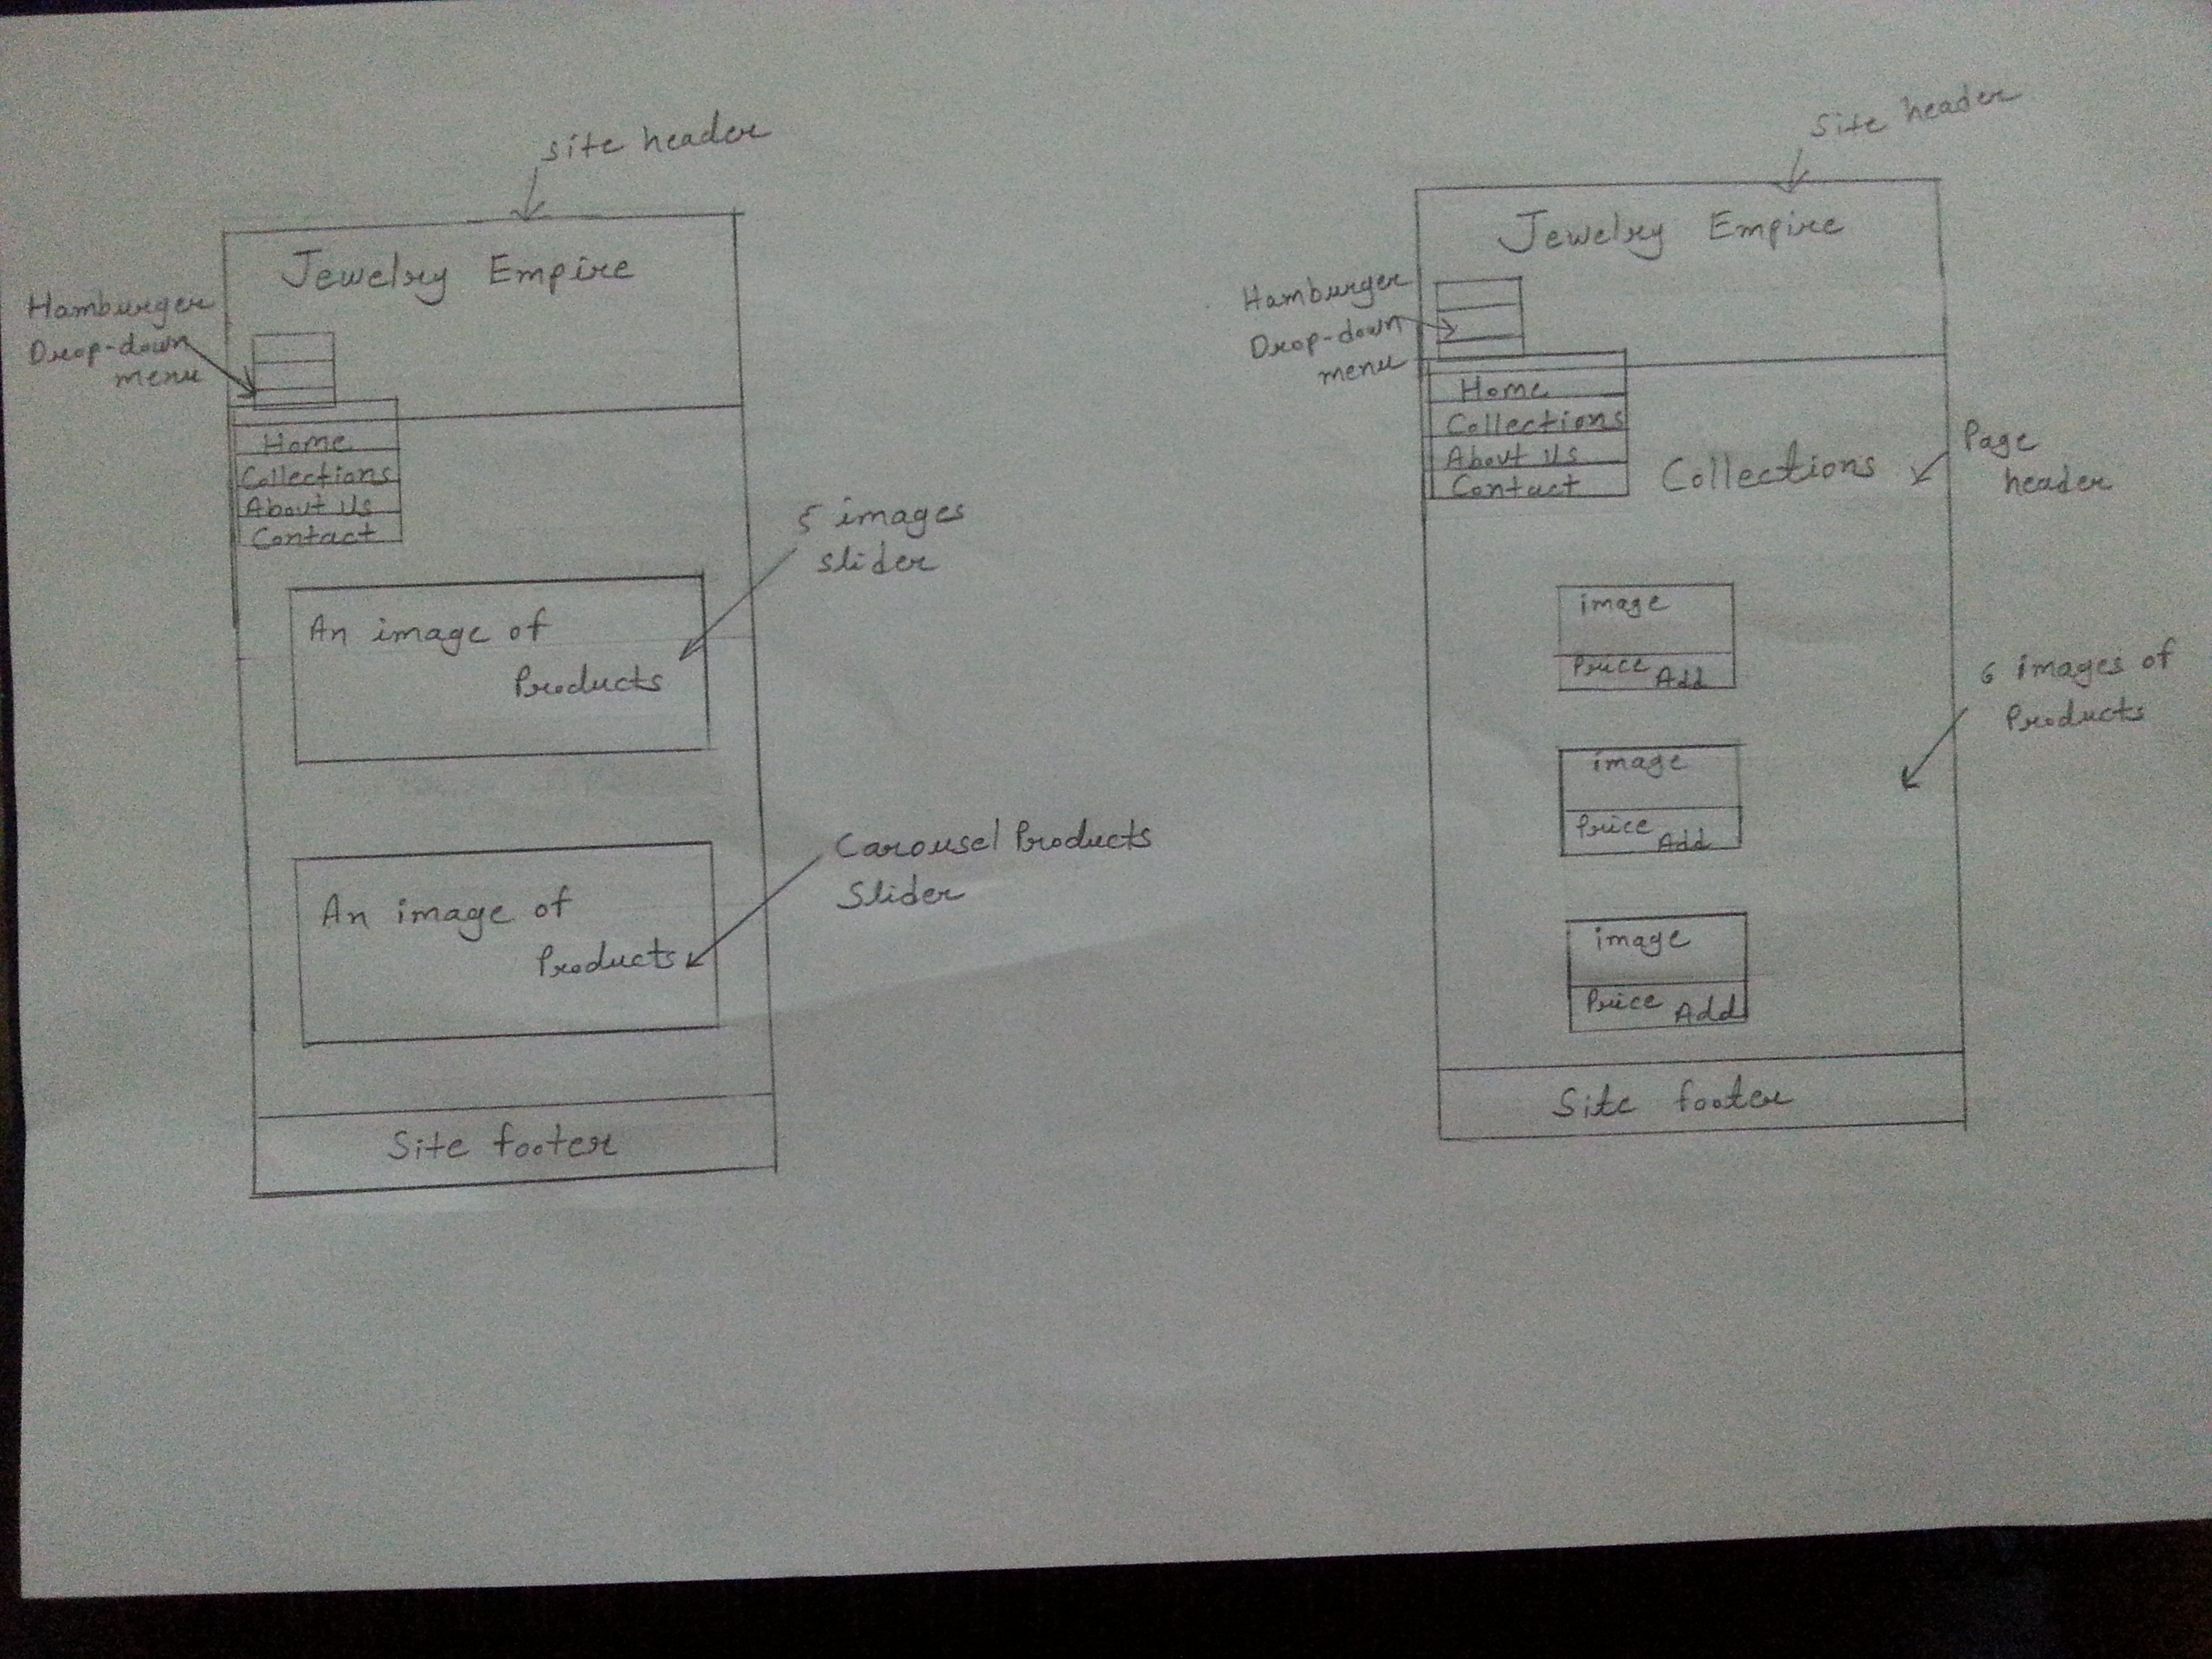 site header
Jewelry Empire
Hamburger
Drop-down
menu
Home
Collections
About Us
Contact
5 images
slider
An image of
Products
Carousel Products
Slider
An image of
Products
Site footer
Site header
Jewelry Empire
Hamburger
Drop-down
menu
Home
Collections
About Us
Contact
Collections
Page
header
image
Price Add
6 images of
Products
image
Price Add
image
Price Add
Site footer